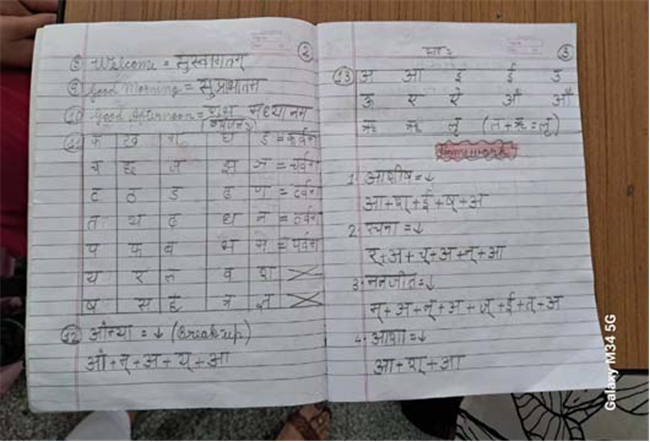 ②
⑧ Welcome = सुस्वागतम्
⑨ Good Morning = सुप्रभातम
⑩ Good Afternoon = शुभ मध्यानम
(व्यंजन)
⑪ क ख ग घ ङ = कवर्ग
च छ ज झ ञ = चवर्ग
ट ठ ड ढ ण = टवर्ग
त थ द ध न = तवर्ग
प फ ब भ म = पवर्ग
य र ल व श
ष स ह त्र ज्ञ
⑫ (Breakup)
③
स्वर
⑬ अ आ इ ई उ
ऊ ए ऐ ओ औ
Homework
1. आशीष = ↓
आ+श्+ई+ष्+अ
2. रचना = ↓
र्+अ+च्+अ+न्+आ
3. = ↓
4. आशा = ↓
आ+श्+आ
Galaxy M34 5G